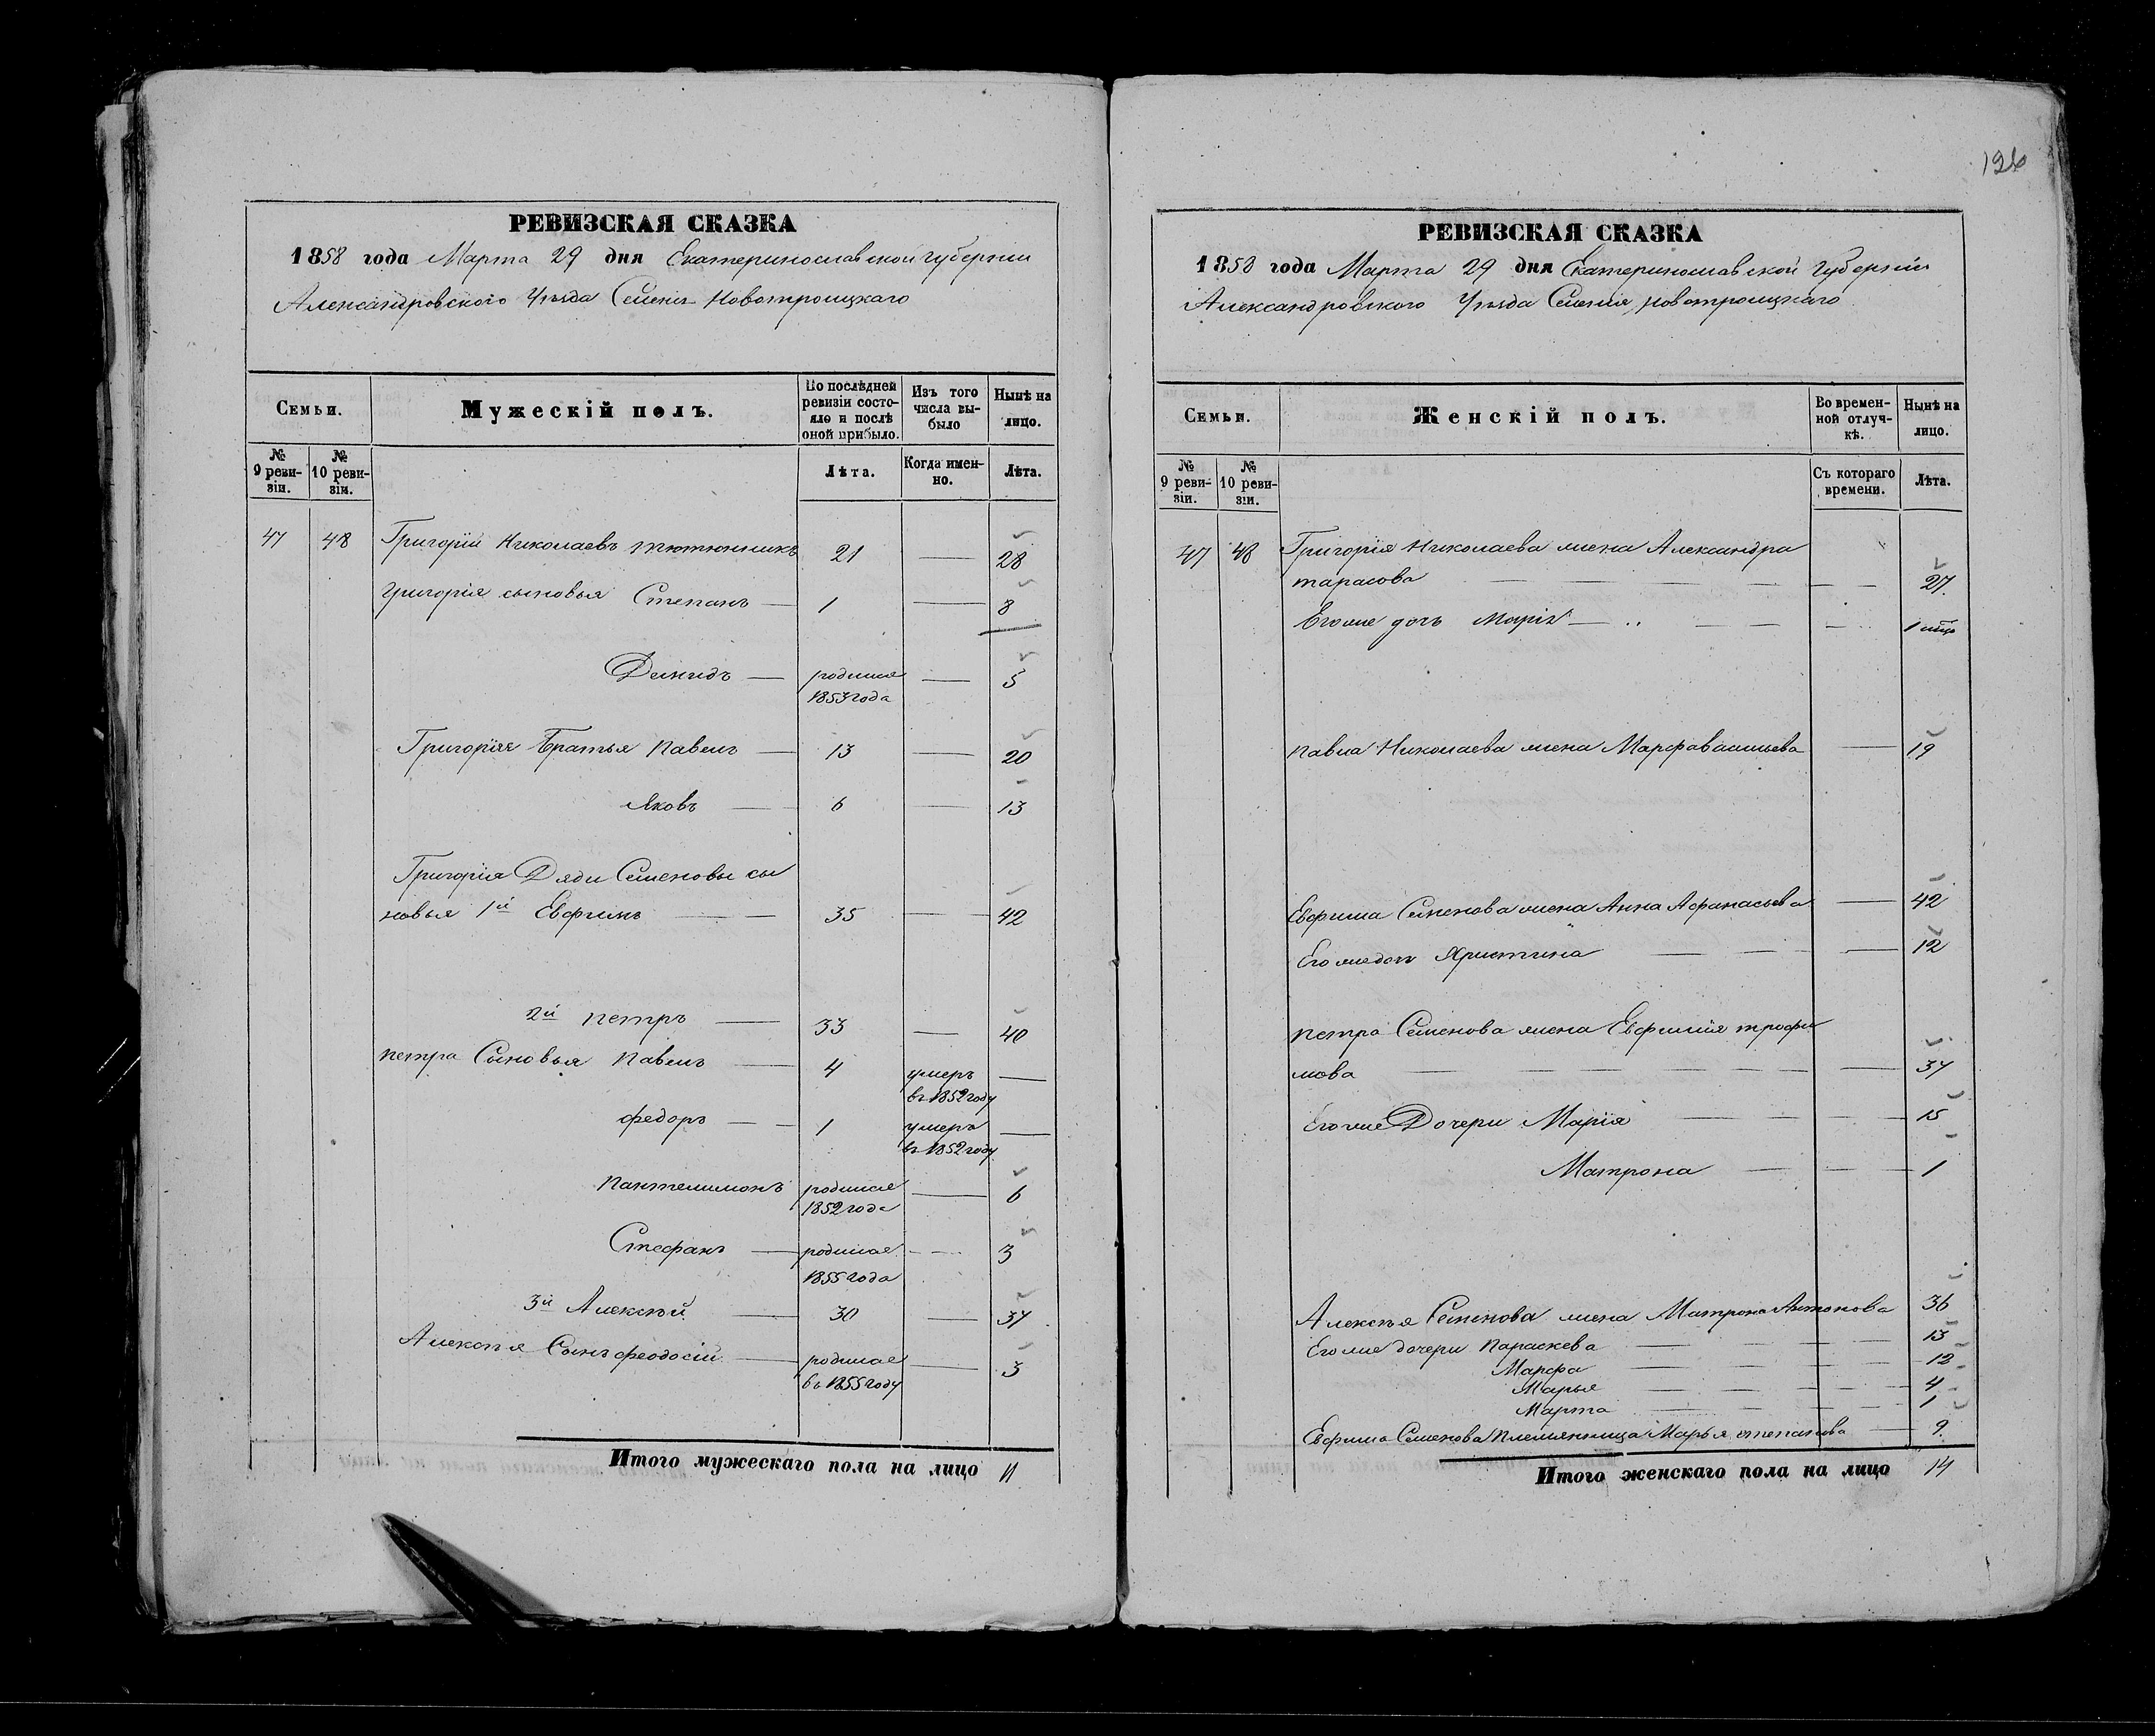 126
РЕВИЗСКАЯ СКАЗКА
1858 года Марта 29 дня Екатеринославской губернии
Александровского Уѣзда Селенія Новотроицкаго
Семьи.
Мужескій полъ.
По послѣдней ревизіи состояло и послѣ оной прибыло.
Изъ того числа выбыло
Нынѣ на лицо.
№ 9 ревизіи.
№ 10 ревизіи.
Лѣта.
Когда именно.
Лѣта.
47 48 Григорій Николаевъ Тютюнникъ 21 — 28
Григорія сыновья Степанъ — 1 — 8
Демидъ — родился 1853 года — 5
Григорія Братья Павелъ — 13 — 20
Яковъ — 6 — 13
Григорія Дяди Семеновы сы
новья 1й Евфимъ — 35 — 42
2й Петръ — 33 — 40
Петра Сыновья Павелъ — 4 умеръ въ 1852 году —
Федоръ — 1 умеръ въ 1852 году —
Пантелимонъ родился 1852 года — 6
Стефанъ — родился 1855 года — 3
3й Алексѣй — 30 — 37
Алексѣя Сынъ Феодосій — родился въ 1855 году — 3
Итого мужескаго пола на лицо 11
РЕВИЗСКАЯ СКАЗКА
1858 года Марта 29 дня Екатеринославской губерніи
Александровского Уѣзда Селенія Новотроицкаго
Семьи.
Женскій полъ.
Во временной отлучкѣ.
Нынѣ на лицо.
№ 9 ревизіи.
№ 10 ревизіи.
Съ котораго времени.
Лѣта.
47 48 Григорія Николаева жена Александра
Тарасова — 27
Его же дочь Марія — 1
Павла Николаева жена Марфа Васильева — 19
Евфима Семенова жена Анна Афанасьева — 42
Его же дочь Христина — 12
Петра Семенова жена Евфимія Трофи
мова — 37
Его же Дочери Марія — 15
Матрона — 1
Алексѣя Семенова жена Матрона Антонова 36
Его же дочери Параскева — 13
Марфа — 12
Марья — 4
Марта — 1
Евфима Семенова Племянница Марья Степанова — 9
Итого женскаго пола на лицо 14